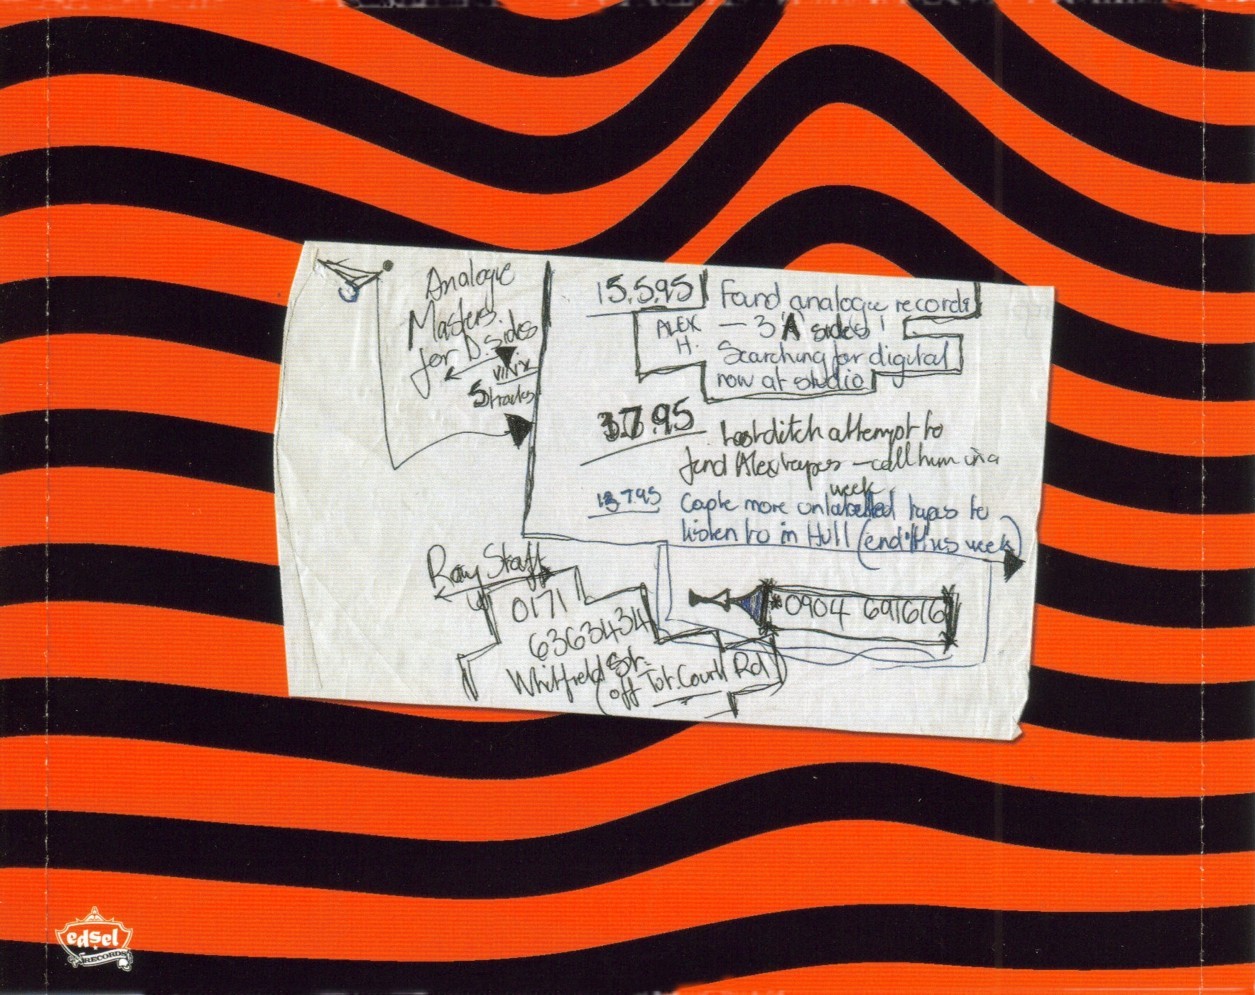 Analogue
Masters
for D.Sides
15.5.95
ALEX
H.
Found analogue records
— 3 A sides!
Searching for digital
now at studio
3.7.95
Last ditch attempt to
find Alex tapes — call him in a
week
13.7.95
Couple more unlabelled tapes to
listen to in Hull (end this week)
Ray Staff
0171
6363434
Whitfield St.
(off Tot. Court Rd)
*0904 691616
edsel
RECORDS